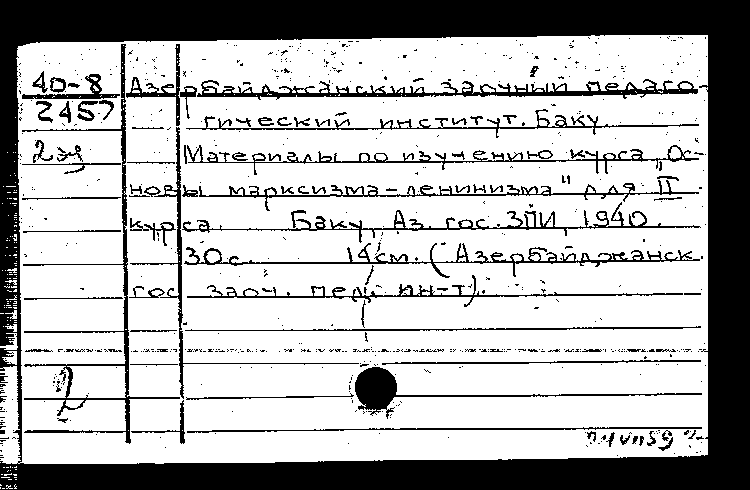 40-8 Азербайджанский заочный педаго-
2457 гический институт. Баку.
2 эз Материалы по изучению курса „Ос-
новы марксизма-ленинизма" для II
курса. Баку, Аз. гос. ЗПИ, 1940.
30 с. 14 см. (Азербайджанск.
гос заоч. пед. ин-т).
2